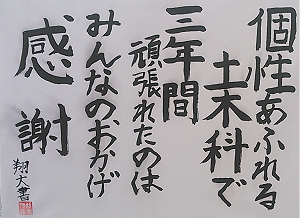 個性あふれる
土木科で
三年間
頑張れたのは
みんなのおかげ
感謝
翔大書